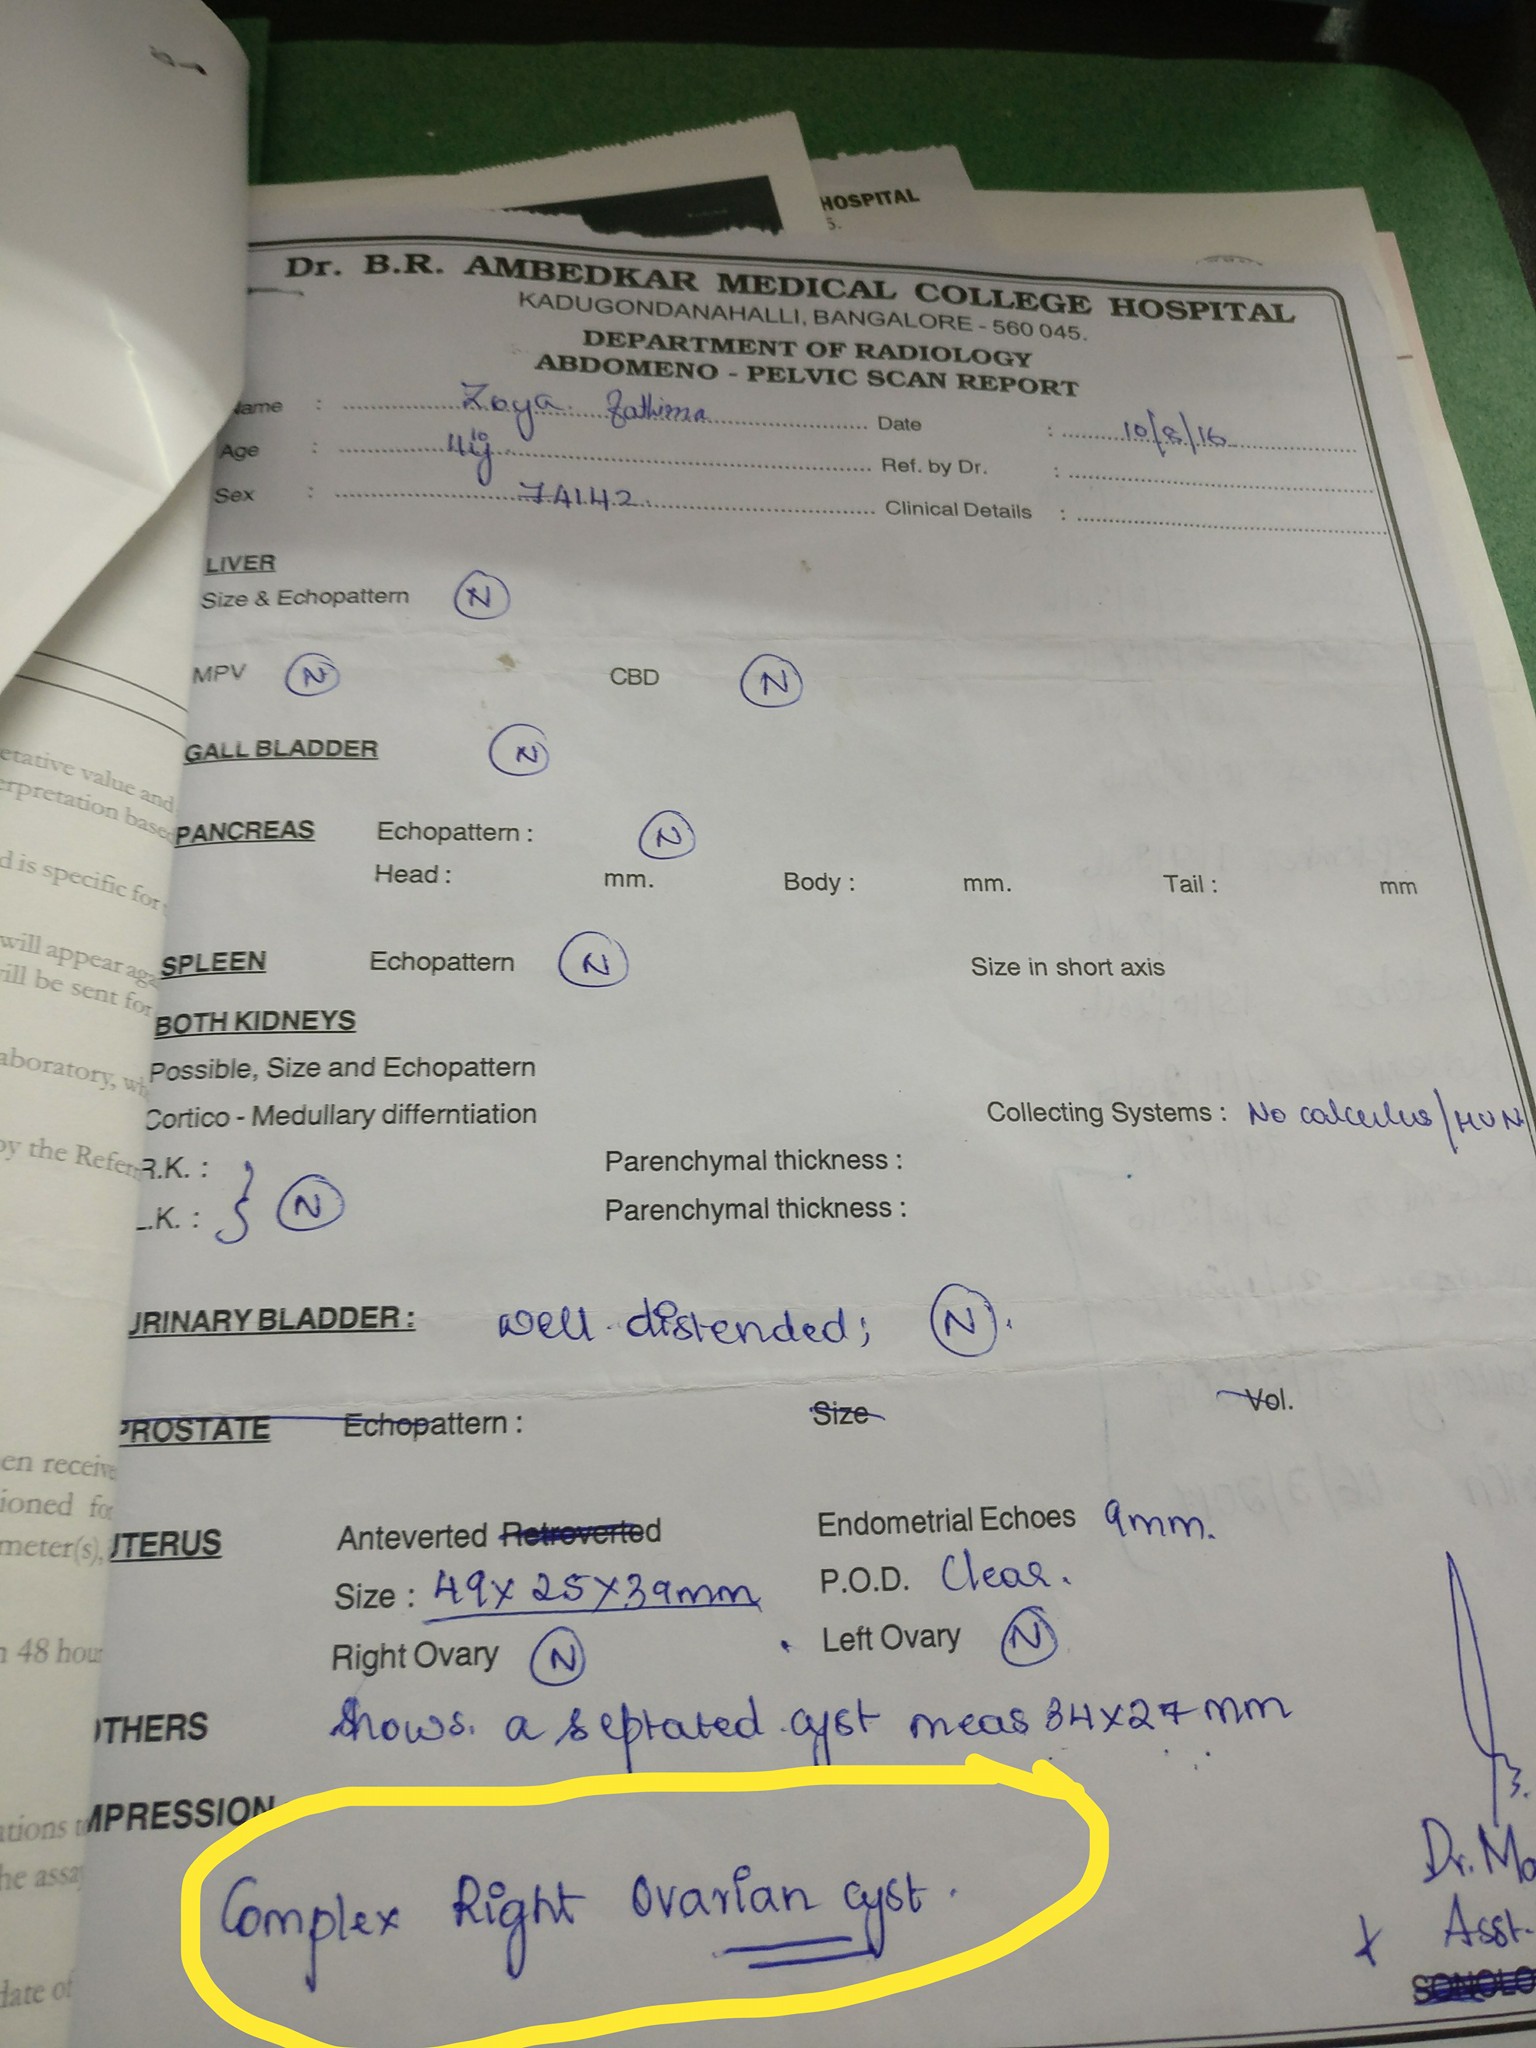 HOSPITAL
Dr. B.R. AMBEDKAR MEDICAL COLLEGE HOSPITAL
KADUGONDANAHALLI, BANGALORE - 560 045.
DEPARTMENT OF RADIOLOGY
ABDOMENO - PELVIC SCAN REPORT
ame : Zoya fathima Date : 10/8/16
Age : Ref. by Dr. :
Sex : 74142 Clinical Details :
LIVER
Size & Echopattern N
MPV N CBD N
GALL BLADDER N
PANCREAS Echopattern : N
Head : mm. Body : mm. Tail : mm
SPLEEN Echopattern N Size in short axis
BOTH KIDNEYS
Possible, Size and Echopattern
Cortico - Medullary differntiation Collecting Systems : No calculus/HUN
R.K. : Parenchymal thickness :
N
.K. : Parenchymal thickness :
URINARY BLADDER : well distended; N.
PROSTATE Echopattern : Size Vol.
UTERUS Anteverted Retroverted Endometrial Echoes 9mm.
Size : 49x25x39mm P.O.D. Clear.
Right Ovary N Left Ovary N
OTHERS shows. a septated cyst meas 34x27mm
IMPRESSION
Complex Right Ovarian cyst.
Dr. Mo
Asst.
SONOLO
etative value and
erpretation base
d is specific for
will appear aga
ill be sent for
aboratory, wh
by the Refer
en receive
ioned for
meter(s),
48 hour
ations t
he assa
date of